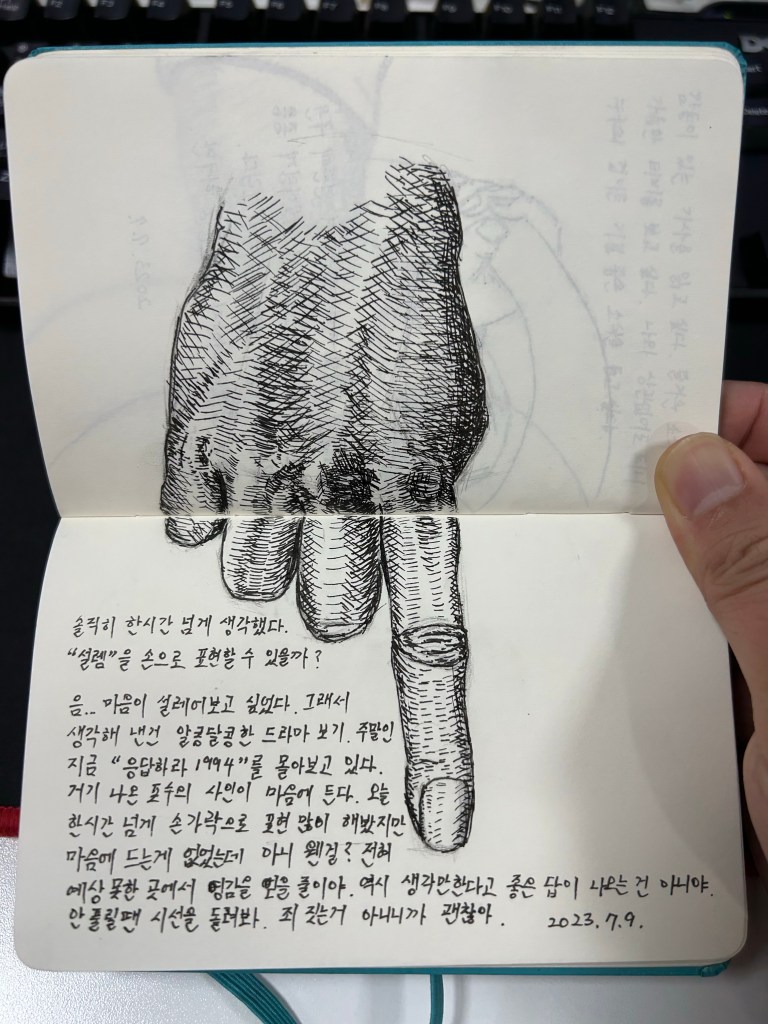 솔직히 한시간 넘게 생각했다.
"설렘"을 손으로 표현할 수 있을까?
음.. 마음이 설레어보고 싶었다. 그래서
생각해 낸건 알콩달콩한 드라마 보기. 주말인
지금 "응답하라 1994"를 몰아보고 있다.
거기 나온 포수의 사인이 마음에 든다. 오늘
한시간 넘게 손가락으로 표현 많이 해봤지만
마음에 드는게 없었는데 아니 웬걸? 전혀
예상 못한 곳에서 영감을 얻을 줄이야. 역시 생각만한다고 좋은 답이 나오는 건 아니야.
안 풀릴땐 시선을 돌려봐. 죄 짓는거 아니니까 괜찮아. 2023.7.9.